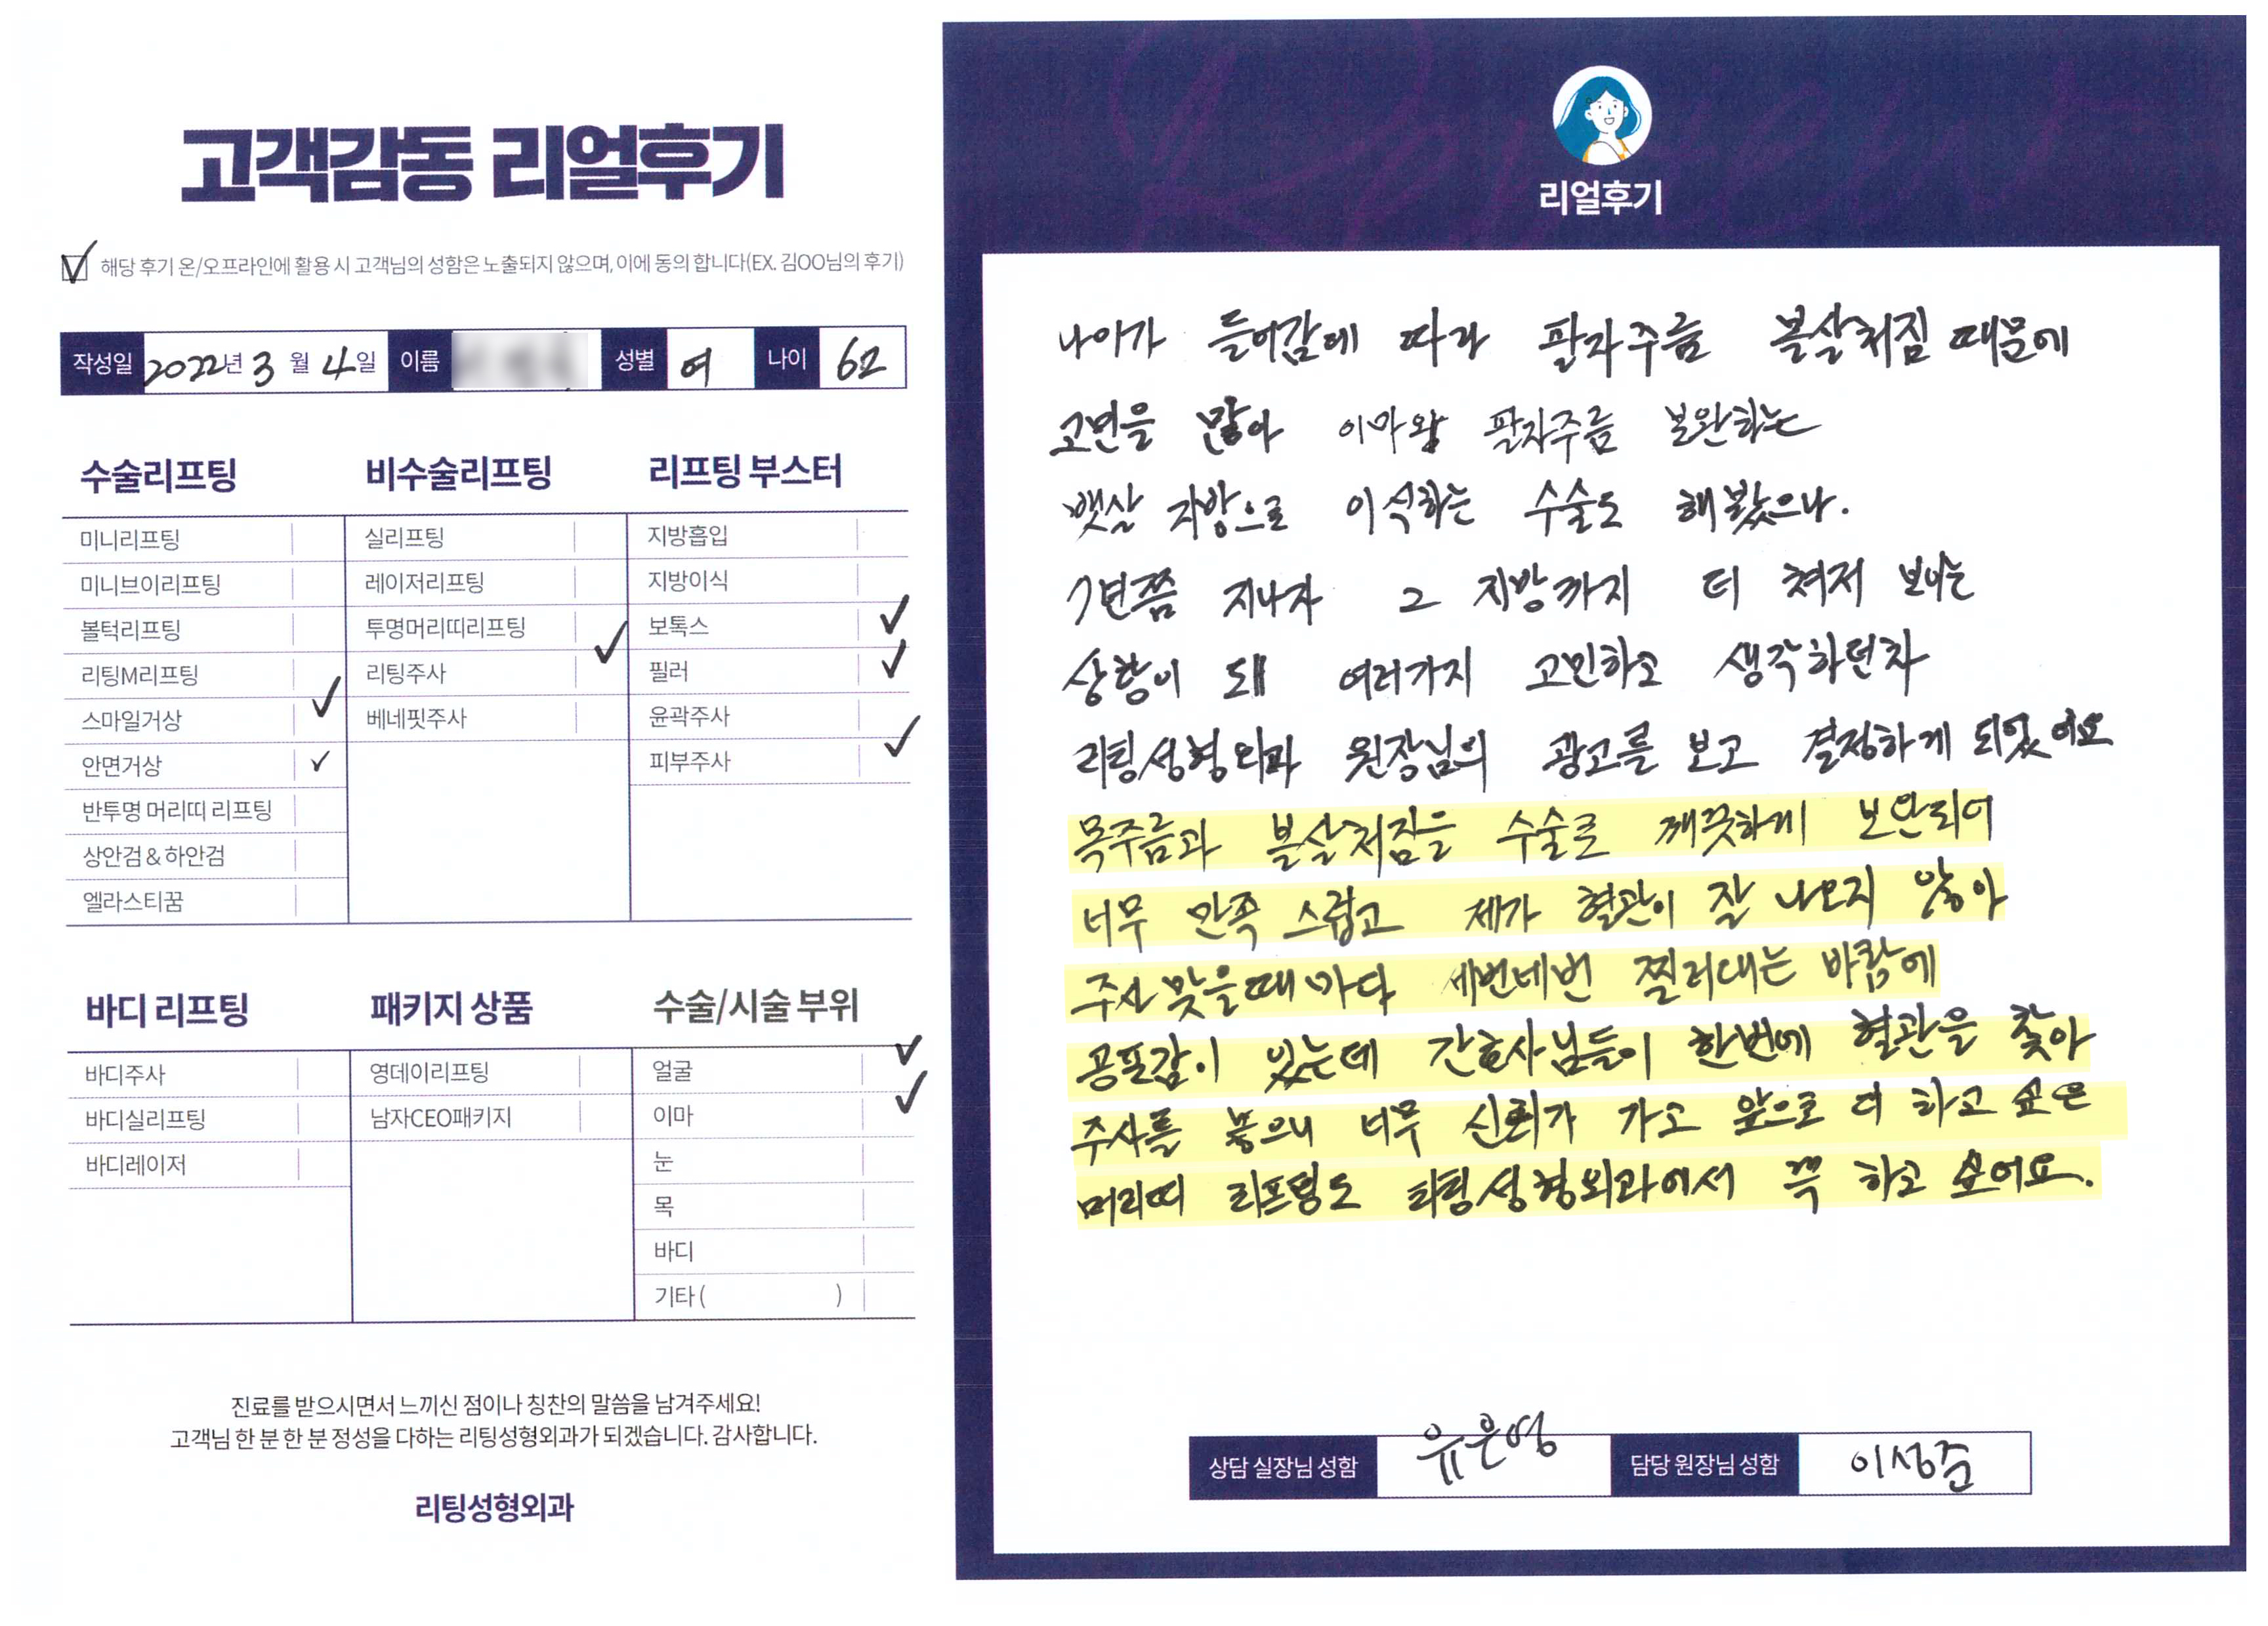 고객감동 리얼후기
해당 후기 온/오프라인에 활용 시 고객님의 성함은 노출되지 않으며, 이에 동의 합니다(EX. 김OO님의 후기)
작성일 2022년 3월 4일 이름 성별 여 나이 62
수술리프팅
미니리프팅
미니브이리프팅
볼턱리프팅
리팅M리프팅
스마일거상
안면거상
반투명 머리띠 리프팅
상안검 & 하안검
엘라스티꿈
비수술리프팅
실리프팅
레이저리프팅
투명머리띠리프팅
리팅주사
베네핏주사
리프팅 부스터
지방흡입
지방이식
보톡스
필러
윤곽주사
피부주사
바디 리프팅
바디주사
바디실리프팅
바디레이저
패키지 상품
영데이리프팅
남자CEO패키지
수술/시술 부위
얼굴
이마
눈
목
바디
기타 ( )
진료를 받으시면서 느끼신 점이나 칭찬의 말씀을 남겨주세요!
고객님 한 분 한 분 정성을 다하는 리팅성형외과가 되겠습니다. 감사합니다.
리팅성형외과
리얼후기
나이가 들어감에 따라 팔자주름 볼살처짐 때문에
고민을 많아 이마와 팔자주름 보완하는
뱃살 지방으로 이식하는 수술도 해봤으나.
1년쯤 지나자 그 지방까지 더 쳐저 보이는
상황이 돼 여러가지 고민하고 생각하던차
리팅성형외과 원장님의 광고를 보고 결정하게 되었어요
목주름과 볼살처짐을 수술로 깨끗하게 보완되어
너무 만족 스럽고 제가 혈관이 잘 나오지 않아
주사 맞을때 마다 세번네번 찔러대는 바람에
공포감이 있는데 간호사님들이 한번에 혈관을 찾아
주사를 놓으니 너무 신뢰가 가고 앞으로 더 하고 싶은
머리띠 리프팅도 리팅성형외과에서 꼭 하고 싶어요.
상담 실장님 성함 유은영 담당 원장님 성함 이성준